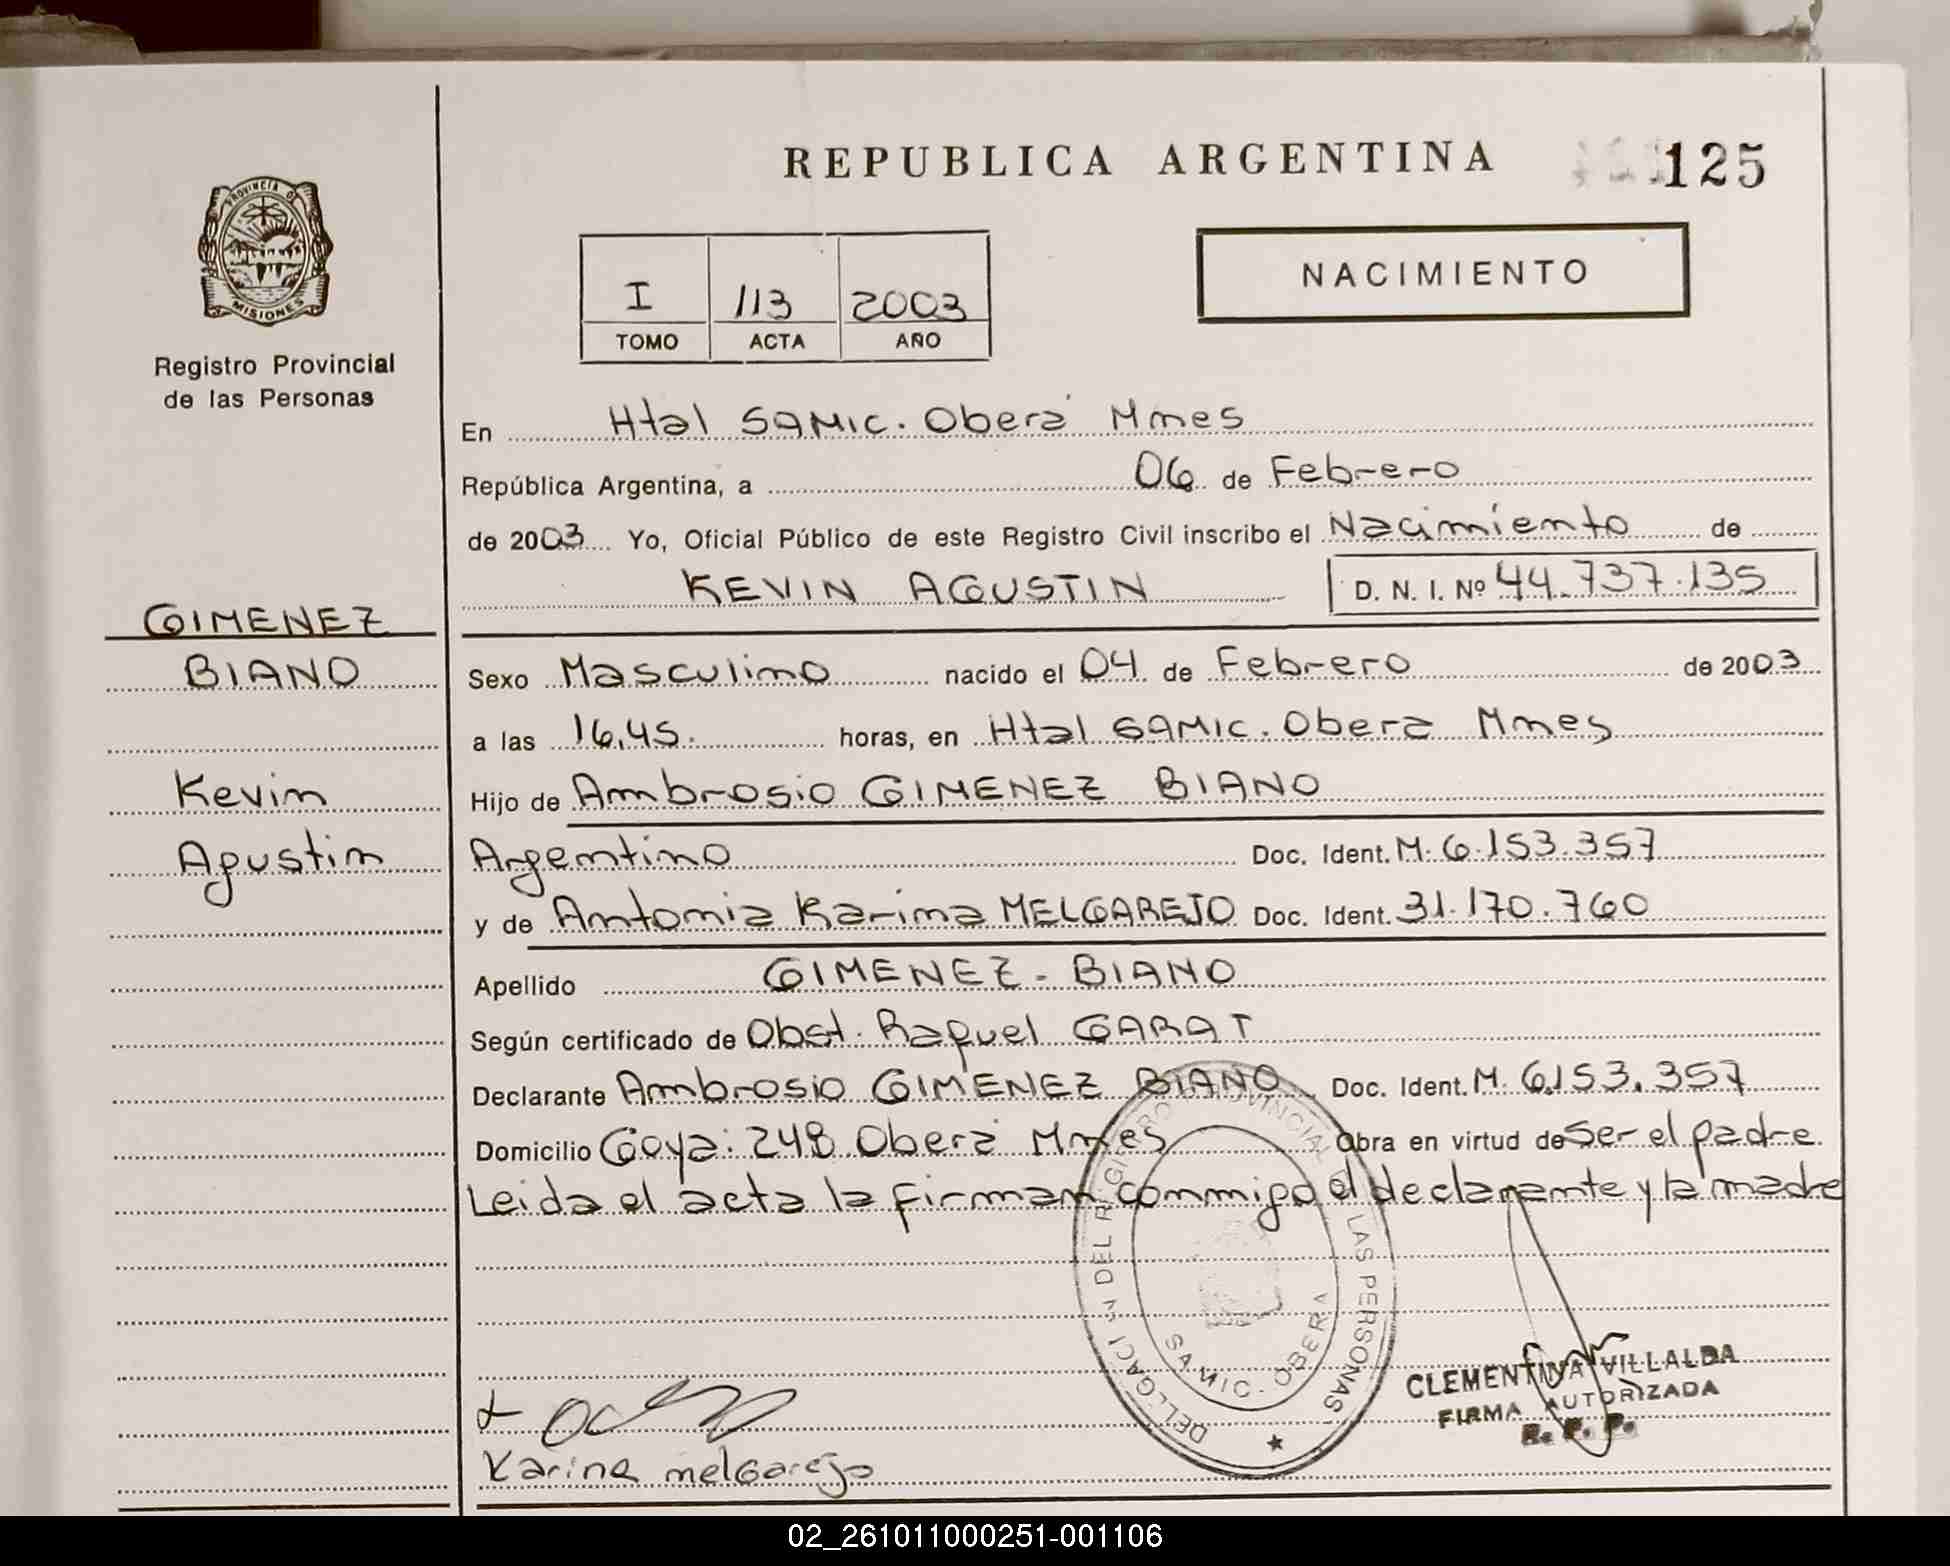 REPUBLICA ARGENTINA
125
PROVINCIA D
MISIONES
Registro Provincial
de las Personas
I 113 2003
TOMO ACTA AÑO
NACIMIENTO
En Htal SAMIC. Oberá Mnes
República Argentina, a 06 de Febrero
de 2003 Yo, Oficial Público de este Registro Civil inscribo el Nacimiento de
KEVIN AGUSTIN D. N. I. Nº 44.737.135
GIMENEZ
BIANO
Kevin
Agustin
Sexo Masculino nacido el 04 de Febrero de 2003
a las 16,45. horas, en Htal SAMIC. Obera Mnes
Hijo de Ambrosio GIMENEZ BIANO
Argentino Doc. Ident. M. 6.153.357
y de Antonia Karina MELGAREJO Doc. Ident. 31.170.760
Apellido GIMENEZ - BIANO
Según certificado de Obst. Raquel GARAT
Declarante Ambrosio GIMENEZ BIANO Doc. Ident. M. 6.153.357
Domicilio Goya: 248 Oberá Mnes Obra en virtud de Ser el padre
Leida el acta la firman conmigo el declarante y la madre
PROVINCIAL
LAS PERSONAS
SAMIC. OBERA
CLEMENTINA VILLALBA
FIRMA AUTORIZADA
R. P. P.
Karina melgarejo
02_261011000251-001106